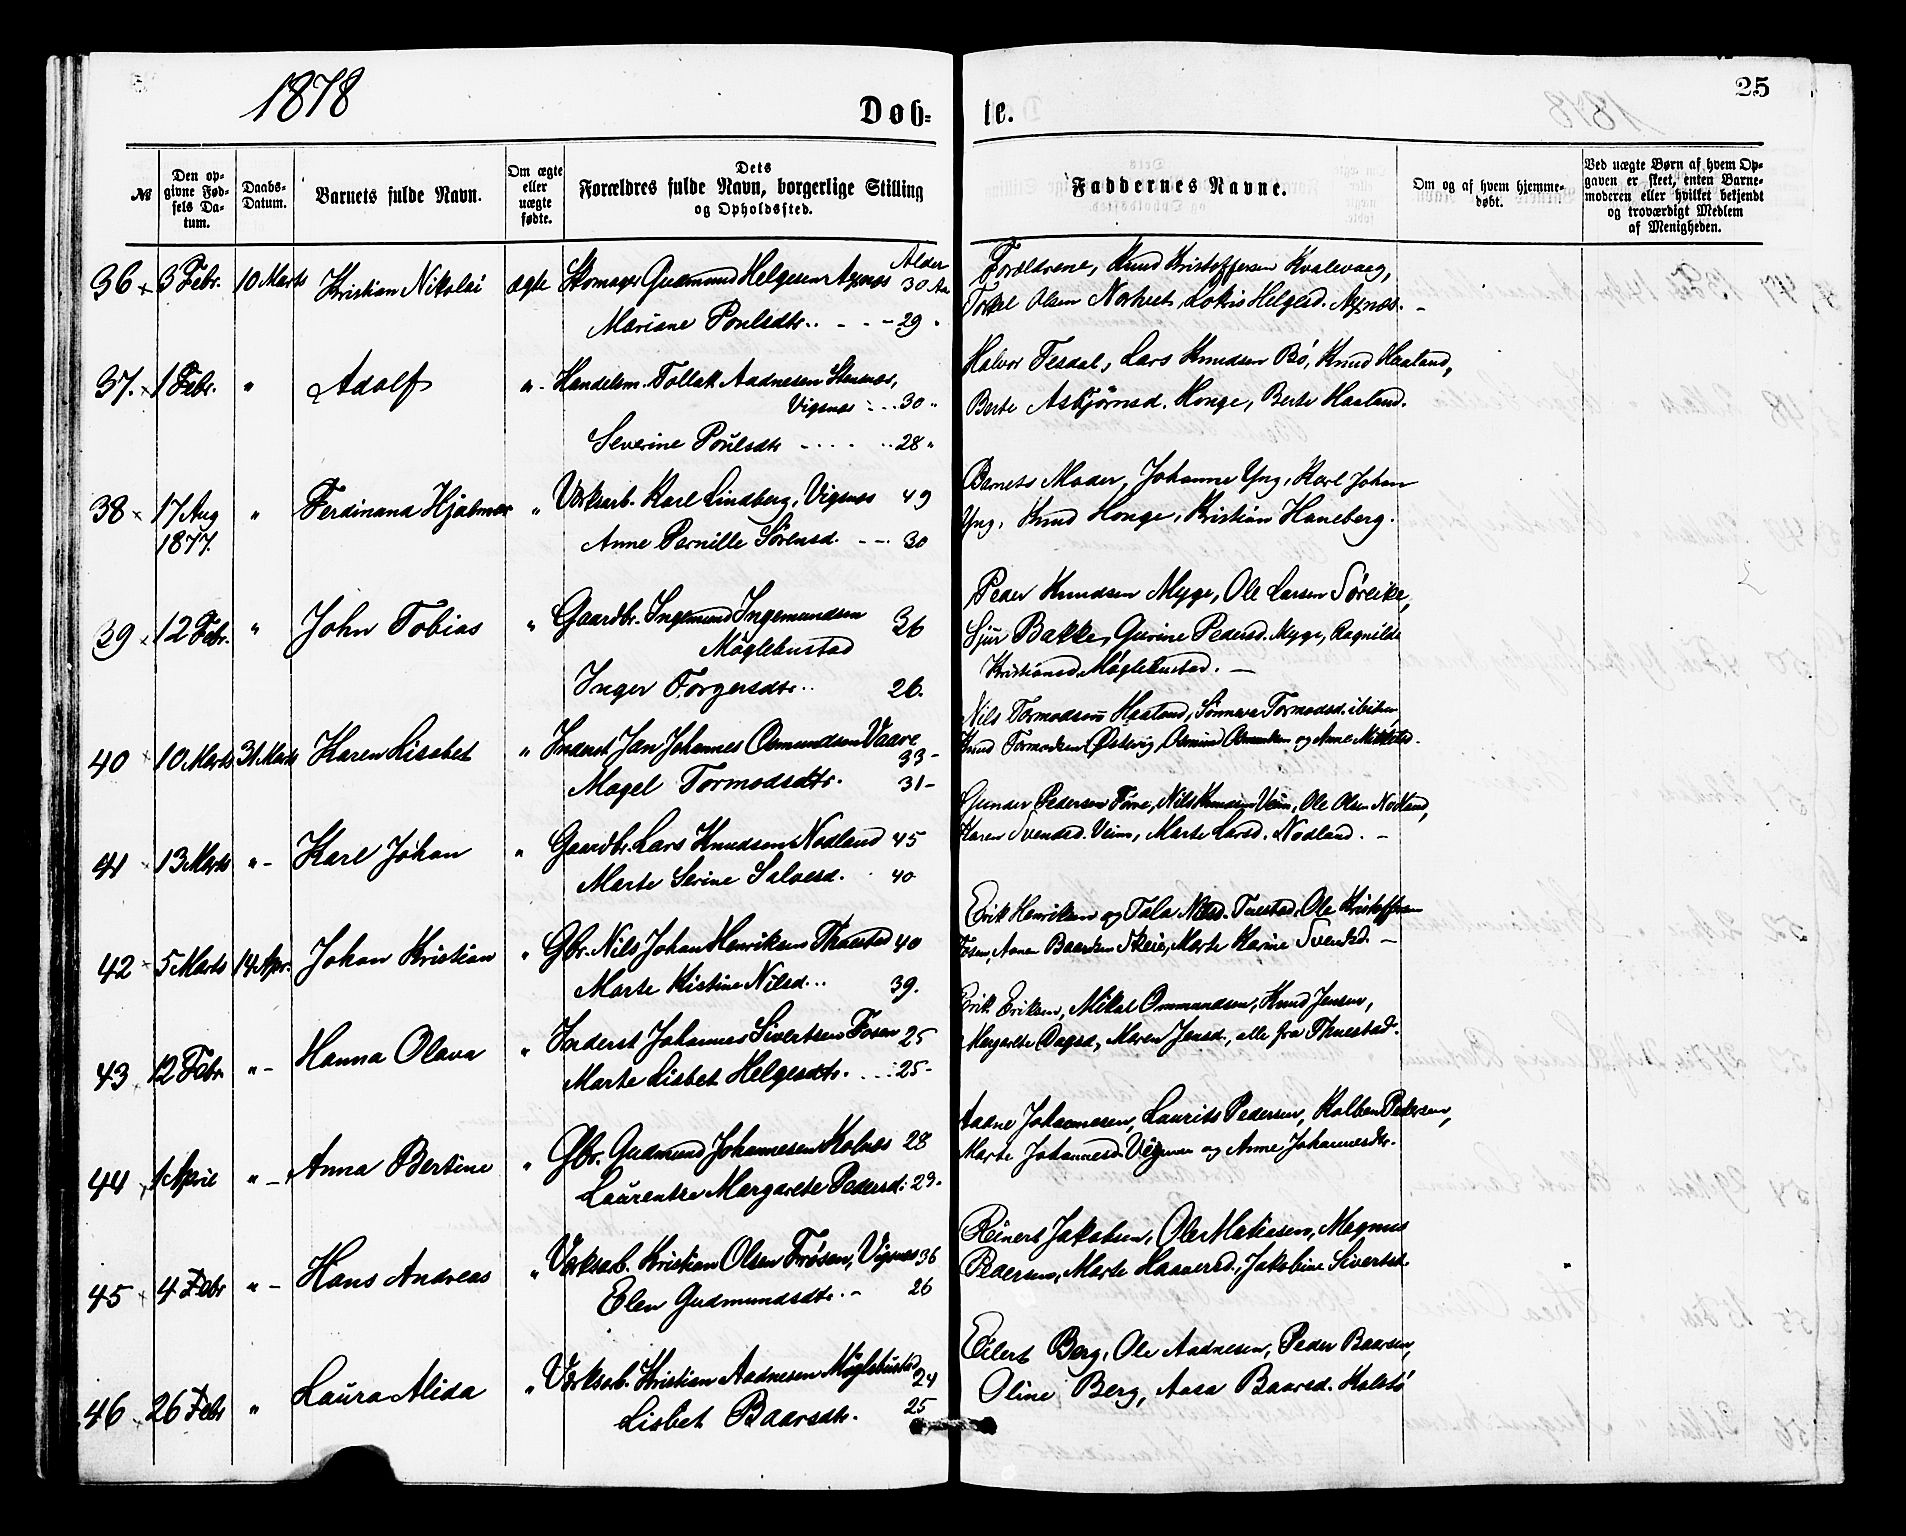 1878
Døb=
te.
25
№
Den opgivne Fødsels Datum.
Daabs-Datum.
Barnets fulde Navn.
Om ægte eller uægte fødte.
Dets Forældres fulde Navn, borgerlige Stilling og Opholdssted.
Faddernes Navne.
Om og af hvem hjemmedøbt.
Ved uægte Børn af hvem Opgaven er skeet, enten Barnemoderen eller hvilket bekjendt og troværdigt Medlem af Menigheden.
Alder
36 3 Febr. 10 Marts Kristian Nikolai ægte Skomager Gudmund Helgesen 30 Aar
Mariane Poulsdtr. 29
Forældrene, Knud Kristoffersen Kvalevaag,
Torkel Olsen Helgesd.
37. 1 Febr. " Adolf " Handelsm. Tollak Aadnesen Stensnes,
Vigsnes 30 "
Severine Poulsdtr 28 "
Halvor Tesdal, Lars Knudsen Bø, Knud Haaland,
Berte Asbjørnsd. Honge, Berte Haaland.
38 17 Aug 1877. " Ferdinand Hjalmar " Værksarb. Karl Lindberg, Vigsnes 49
Anne Pernille Sørensd. 30
Barnets Moder, Johanne Yng, Karl Johan
Yng, Knud Honge, Kristian Haneberg.
39 12 Febr. " John Tobias " Gaardbr. Ingemund Ingemundsen 36
Møglebustad
Inger Torgersdtr. 26.
Peder Knudsen Myge, Ole Larsen Søreike,
Sjur Bakke, Gurine Pedersd. Myge, Ragnilde
Kristiansd. Møglebustad. —
40 10 Marts 31 Marts Karen Lisabet " Inderst Jan Johannes Osmundsen Vaare
33 -
Magel Tormodsdtr. 31 -
Nils Tormodsen Haaland, Sønneva Tormodsd. ibidem
Knud Tormodsen Østevig, Osmund Osmundsen og Anne
41 13 Marts " - Karl Johan " Gaardbr. Lars Knudsen Nodland 45
Marte Serine Salvesd. 40
Gunder Pedersen Nils Knudsen Veim, Ole Olsen Nodland,
Karen Svendsd. Veim, Marte Larsd. Nodland. -
42 5 Marts 14 Apr. Johan Kristian " Gbr. Nils Johan Henriksen Thuestad 40
Marte Kistine Nilsd... 39.
Erik Henriksen og Tala Nilsd. Tuestad, Ole Kristoffersen
Fosen, Baardsen Skeie, Marte Karine Svendsd. -
43 12 Febr " - Hanna Olava " Inderst Johannes Sivertsen Fosen 25
Marte Lisbet Helgesdtr. 25 -
Erik Eriksen, Mikal Ommundsen, Knud Jensen,
Margarete Dagsd., Maren Jensd., alle fra Thuestad.
44 1 April " - Anna Bertine " Gbr. Gudmund Johannesen Kolnes 28
Laurentse Margarete Pedersd. 29.
Aadne Johannesen, Laurits Pedersen, Kolben Pedersen,
Marte Johannesd. og Anne Johannesdtr.
45 4 Febr " - Hans Andreas " Værksarb. Kristian Olsen Frøsen, Vigsnes 36
Elen Gudmundsdtr. - 26
Reinert Jakobsen, Ole Matiasen, Magnus
Pedersen, Marte Haaversd., Jakobine Sivertsd.
46 26 Febr " Laura Alida " Værksarb. Kristian Aadnesen Møglebustad
24
Lisbet Baarsdtr. 25
Eilert Berg, Ole Aadnesen, Peder Baarsen,
Oline Berg, Aasa Baarsd. Kolstø